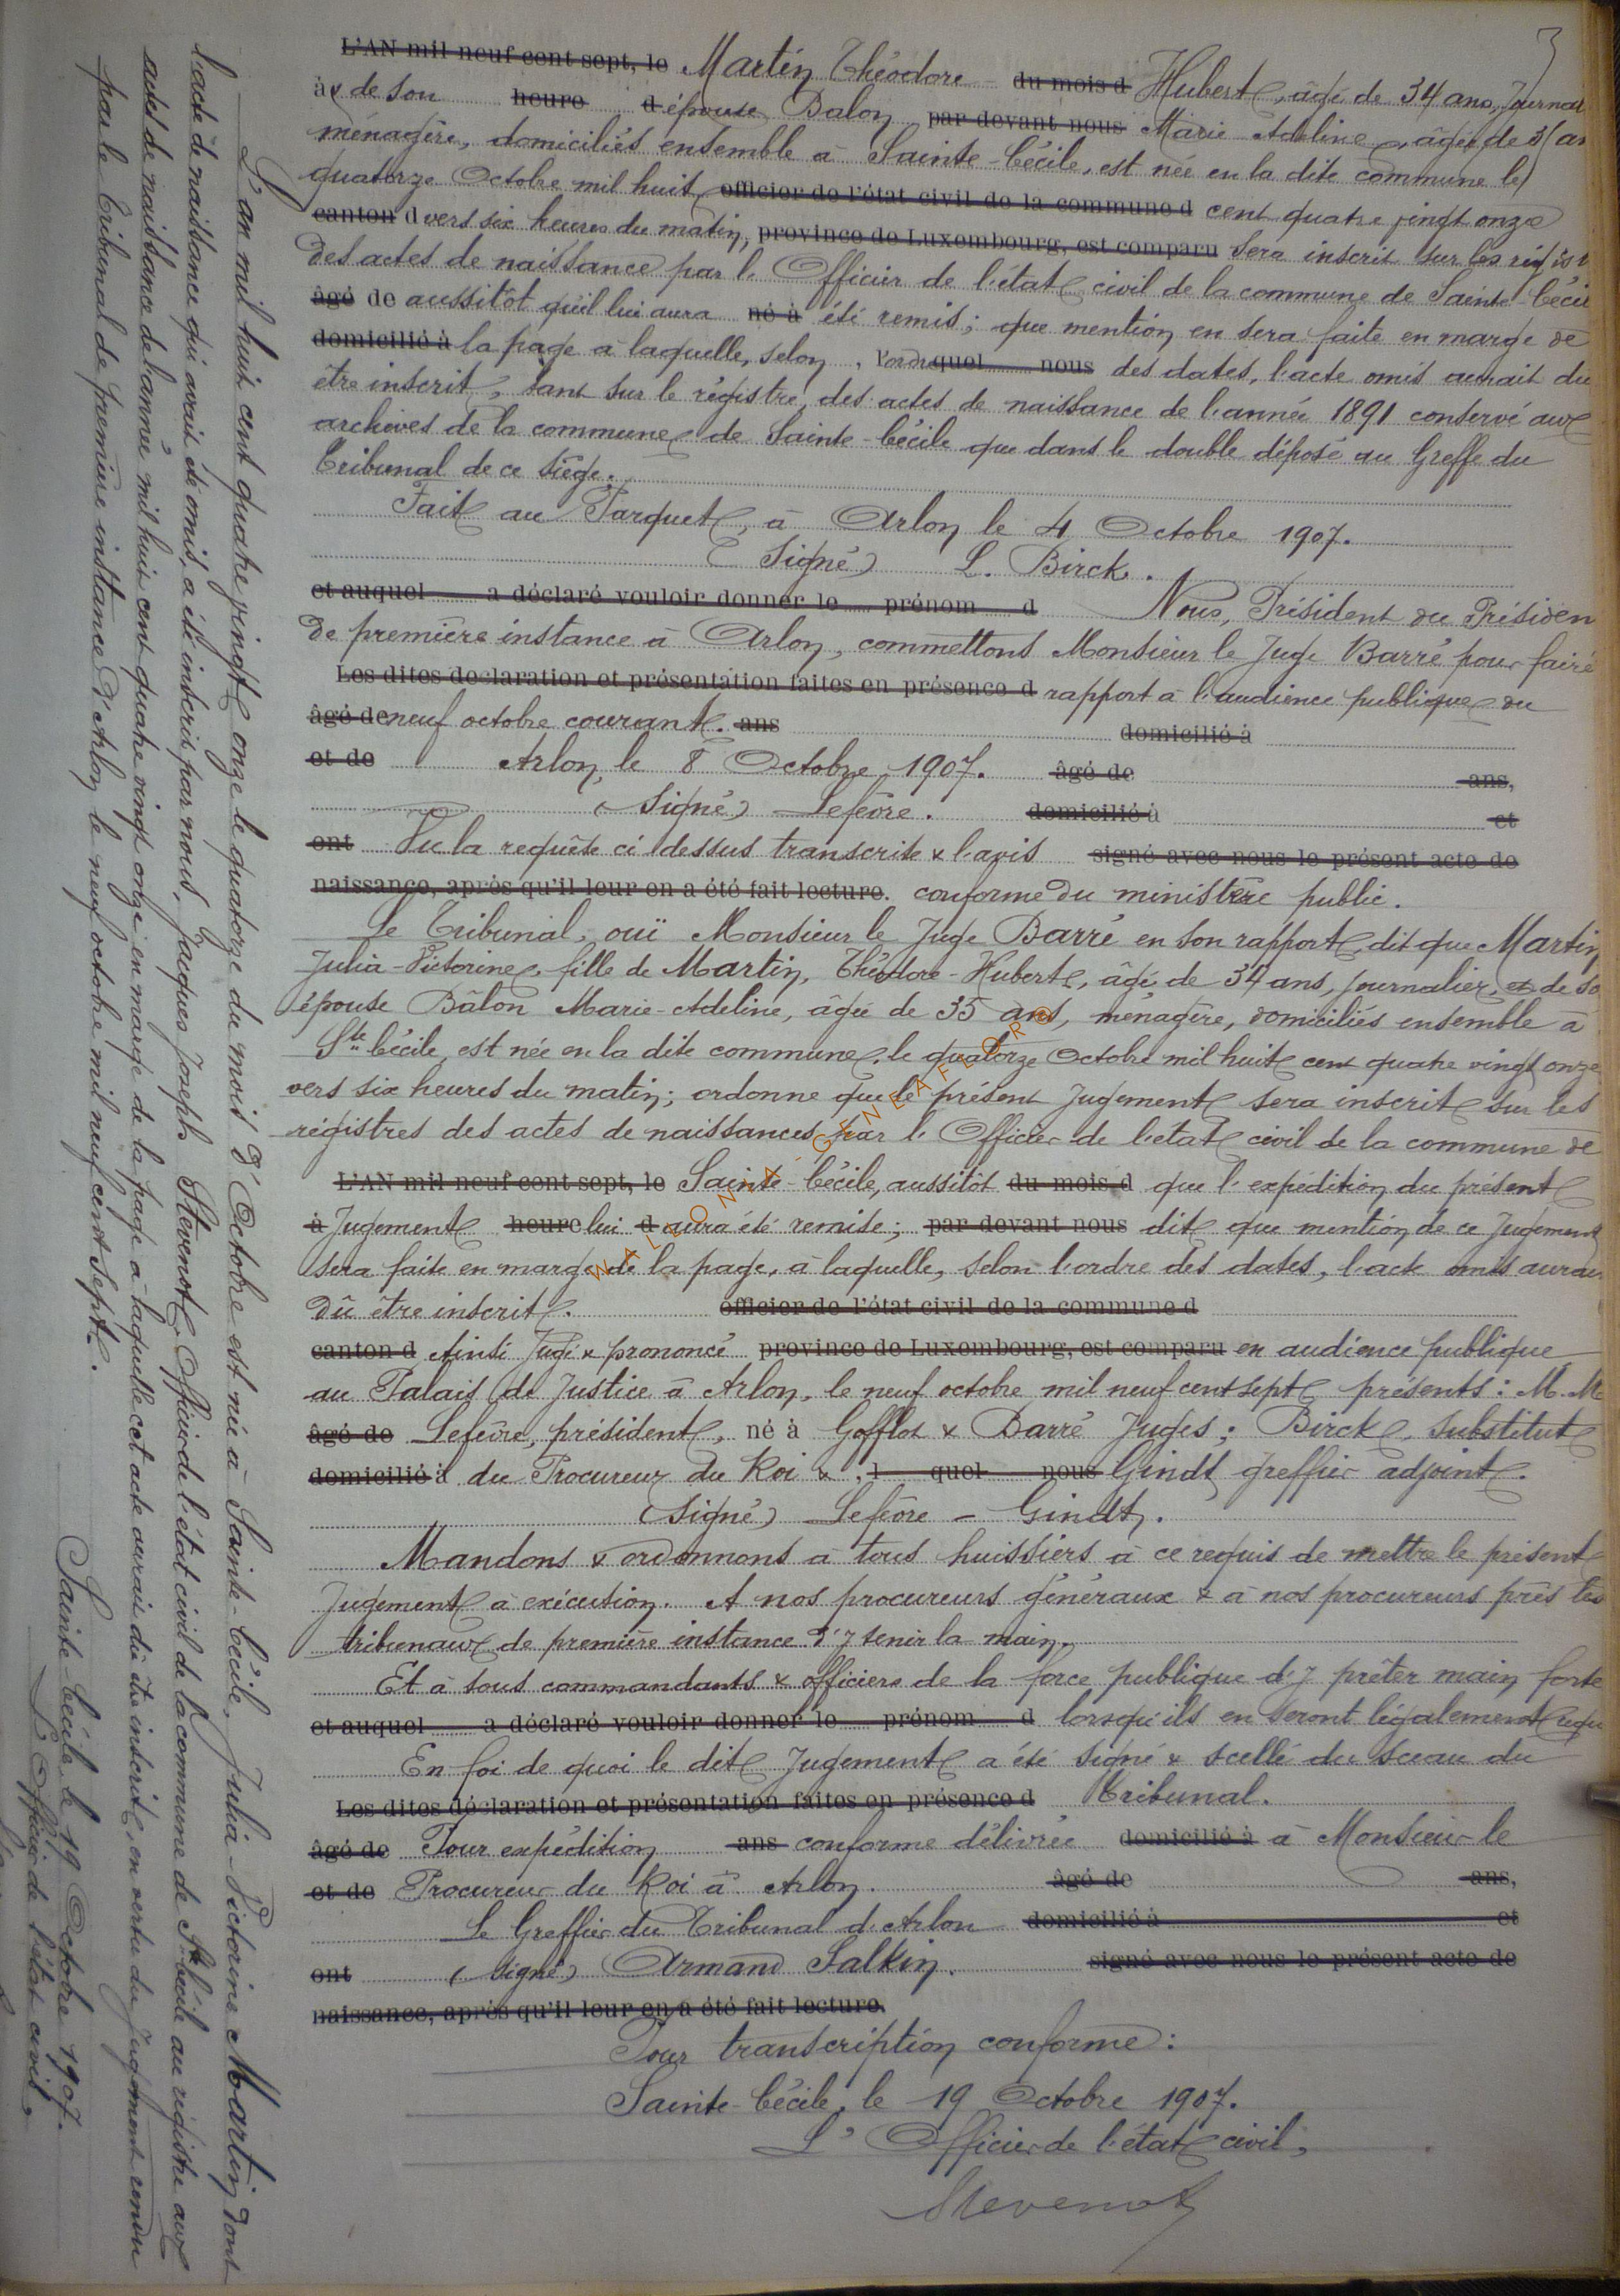 3
L'AN mil neuf cent sept, le Martin Théodore du mois d Hubert, âgé de 34 ans, journal
à & de son heure d épouse Balon par devant nous Marie Adeline, âgée de 35 an
ménagère, domiciliés ensemble à Sainte-Cécile, est née en la dite commune le
quatorze Octobre mil huit officier de l'état civil de la commune d cent quatre vingt onze
canton d vers six heures du matin, province de Luxembourg, est comparu sera inscrit sur les regist
des actes de naissance par l'Officier de l'état civil de la commune de Sainte-Cécile
âgé de aussitôt qu'il lui aura né à été remis; que mention en sera faite en marge de
domicilié à la page à laquelle, selon, l'ordre quel nous des dates, l'acte omis aurait du
être inscrit, tant sur le registre des actes de naissance de l'année 1891 conservé aux
archives de la commune de Sainte-Cécile que dans le double déposé au Greffe du
Tribunal de ce Siège.
Fait au Parquet, à Arlon le 4 Octobre 1907.
(Signé) L. Birck.
et auquel a déclaré vouloir donner le prénom d Nous, Président du Présiden
de première instance à Arlon, commettons Monsieur le Juge Barré pour faire
Les dites declaration et présentation faites en présence d rapport à l'audience publique du
âgé de neuf octobre courant. ans domicilié à
et de Arlon, le 8 Octobre 1907. âgé de ans,
(Signé) Lefèvre. domicilié à et
ont Vu la requête ci dessus transcrite & l'avis signé avec nous le présent acte de
naissance, après qu'il leur en a été fait lecture. conforme du ministère public.
Le Tribunal, ouï Monsieur le Juge Barré en son rapport, dit que Martin
Julia-Victorine, fille de Martin, Théodore-Hubert, âgé de 34 ans, journalier, et de so
épouse Bâlon Marie-Adeline, âgée de 35 ans, ménagère, domiciliés ensemble à
Ste Cécile, est née en la dite commune, le quatorze Octobre mil huit cent quatre vingt onze
vers six heures du matin; ordonne que le présent Jugement sera inscrit sur les
régistres des actes de naissances par l'Officier de l'état civil de la commune de
L'AN mil neuf cent sept, le Sainte-Cécile, aussitôt du mois d que l'expédition du présent
à Jugement heure lui d aura été remise; par devant nous dit que mention de ce Jugement
sera faite en marge de la page, à laquelle, selon l'ordre des dates, l'acte omis aurai
dû être inscrit. officier de l'état civil de la commune d
canton d Ainsi Jugé & prononcé province de Luxembourg, est comparu en audience publique
au Palais de Justice à Arlon, le neuf octobre mil neuf cent sept, présents: M. M
âgé de Lefèvre, président, né à Gofflot & Barré Juges; Birck, Substitut
domicilié à du Procureur du Roi &, l quel nous Gindt greffier adjoint.
(Signé) Lefèvre - Gindt.
Mandons & ordonnons à tous huissiers à ce requis de mettre le présent
Jugement à exécution. A nos procureurs généraux & à nos procureurs près les
tribunaux de première instance d'y tenir la main.
Et à tous commandants & officiers de la force publique d'y prêter main forte
et auquel a déclaré vouloir donner le prénom d lorsqu'ils en seront légalement requ
En foi de quoi le dit Jugement a été signé & scellé du sceau du
Les dites déclaration et présentation faites en présence d Tribunal.
âgé de Pour expédition ans conforme délivrée domicilié à à Monsieur le
et de Procureur du Roi à Arlon. âgé de ans,
Le Greffier du Tribunal d'Arlon domicilié à et
ont (signé) Armand Salkin. signé avec nous le présent acte de
naissance, après qu'il leur en a été fait lecture.
Pour transcription conforme:
Sainte-Cécile, le 19 Octobre 1907.
L'Officier de l'état civil,
Stevenot
L'an mil huit cent quatre vingt onze le quatorze du mois d'Octobre est née à Sainte-Cécile, Julia-Victorine Martin dont
l'acte de naissance qui avait été omis, a été inscrit par nous, Jacques Joseph Stevenot, Officier de l'état civil de la commune de Ste Cécile au régistre aux
actes de naissance de l'année mil huit cent quatre vingt onze en marge de la page à laquelle cet acte aurait dû être inscrit, en vertu du Jugement rendu
par le Tribunal de première instance d'Arlon le neuf octobre mil neuf cent sept.
Sainte-Cécile, le 19 Octobre 1907.
L'Officier de l'état civil,
WALLONIA GENEAFLORE